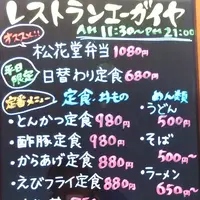 レストランエーガイヤ
AM 11:30~PM 21:00
オススメ!! 松花堂弁当 1080円
平日限定 日替わり定食 680円
定番メニュー 定食・丼もの
・とんかつ定食 980円
・酢豚定食 980円
・からあげ定食 880円
・えびフライ定食 880円
めん類
・うどん 500円~
・そば 500円~
・ラーメン 650円~